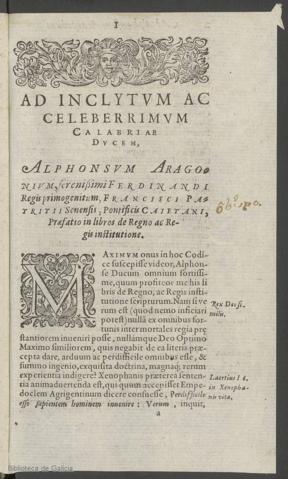 1
AD INCLYTVM AC
CELEBERRIMVM
CALABRIAE
DVCEM,
ALPHONSVM ARAGO-
NIVM, serenissimi FERDINANDI
Regis primogenitum, FRANCISCI PA-
TRITII Senensis, Pontificis CAIETANI,
Præfatio in libros de Regno ac Re-
gis institutione.
MAXIMVM onus in hoc Codi-
ce suscepisse videor, Alphon-
se Ducum omnium fortissi-
me, quum profiteor michi li
bris de Regno, ac Regis insti-
tutione scripturum. Nam si ve
rum est (quod nemo inficiari
potest) nullā ex omnibus for-
tunis inter mortales regia præ
stantiorem inueniri posse, nullámque Deo Optimo
Maximo similiorem, quis negabit de ea litteris præ-
cepta dare, arduum ac perdifficile omnibus esse, &
summo ingenio, exquisita doctrina, magnaq; rerum
experientia indigere? Xenophanis præterea senten-
tia animaduertenda est, qui quum accepisset Empe-
doclem Agrigentinum dicere consuesse, Perdifficile
esse sapientem hominem inuenire: Verum, inquit,
Rex Deo si-
milis.
Laertius l. 6.
in Xenopha-
nis vita.
a
Biblioteca de Galicia